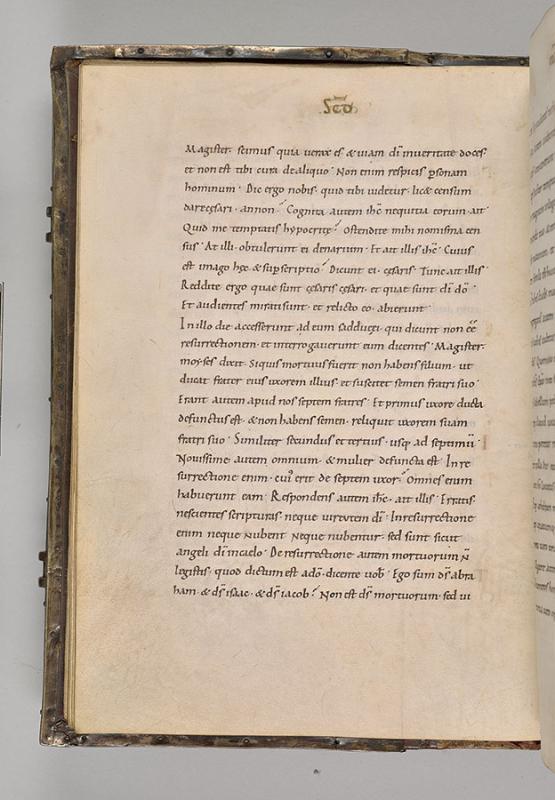 Scd̄
Magister· scimus quia uerax es & uiam dī inueritate doces·
et non est tibi cura dealiquo· Non enim respicis p̱sonam
hominum· Dic ergo nobis· quid tibi uidetur· lic& censum
darecęsari· annon? Cognita autem ih̄c nequitia eorum· ait·
Quid me temptatis hypocritę? Ostendite mihi nomisma cen
sus· At illi· obtulerunt ei denarium· Et ait illis ih̄c· Cuius
est imago hęc & sup̱scriptio? Dicunt ei· cęsaris· Tunc ait illis·
Reddite ergo quae sunt cęsaris cęsari· et quae sunt dī dō·
Et audientes mirati sunt· et relicto eo· abierunt·
In illo die accesserunt ad eum sadducęi· qui dicunt non eē
resurrectionem· et interrogauerunt eum dicentes· Magister·
moyses dixit· Siquis mortuus fuerit non habens filium· ut
ducat frater eius uxorem illius· et suscitet semen fratri suo·
Erant autem apud nos septem fratres· Et primus uxore ducta
defunctus est· & non habens semen· reliquit uxorem suam
fratri suo· Similiter secundus et tertius· usq; ad septimū·
Nouissime autem omnium· & mulier defuncta est· In re
surrectione enim· cui' erit de septem uxor? Omnes enim
habuerunt eam· Respondens autem ih̄c· ait illis· Erratis·
nescientes scripturas· neque uirtutem dī· In resurrectione
enim neque Nubent Neque nubentur· sed sunt sicut
angeli dī incaelo· De resurrectione autem mortuorum n̄
legistis· quod dictum est adō· dicente uob̄· Ego sum dS̄ abra
ham· & dS̄ isaac· & dS̄ iacob? Non est dS̄ mortuorum· sed ui